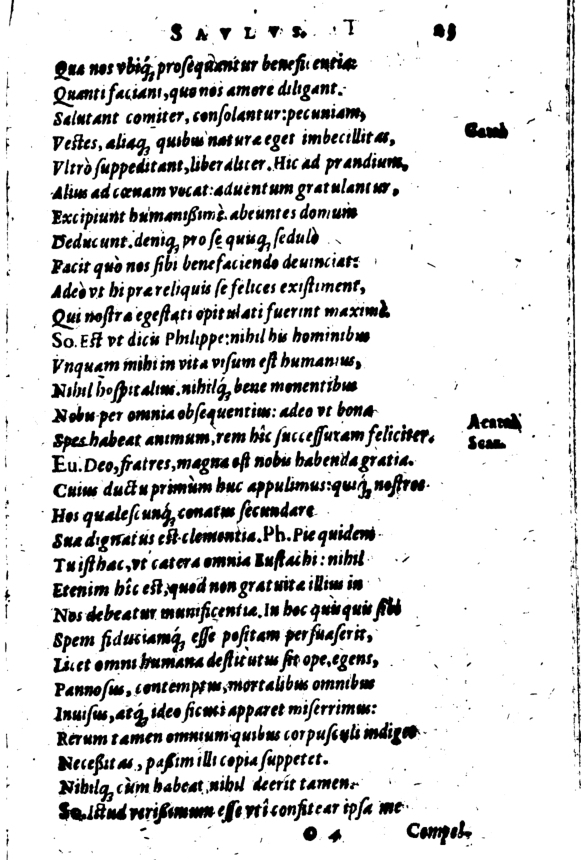 SAVLVS. I 25
Qua nos vbiq́; prosequantur beneficentia:
Quanti faciant, quo nos amore diligant.
Salutant comiter, consolantur: pecuniam,
Vestes, aliaq́; quibus natura eget imbecillitas,
Vltrò suppeditant, liberaliter. Hic ad prandium,
Alius ad cœnam vocat: aduentum gratulantur,
Excipiunt humanißimè. abeuntes domum
Deducunt. deniq́; pro se quiuq́; sedulò
Facit quò nos sibi benefaciendo deuinciat:
Adeò vt hi præ reliquis se felices existiment,
Qui nostra egestati opitulati fuerint maximè.
So. Est vt dicis Philippe: nihil his hominibus
Vnquam mihi in vita visum est humanius,
Nihil hospitalius. nihilq́; bene monentibus
Nobis per omnia obsequentius: adeo vt bona
Spes habeat animum, rem hîc successuram feliciter.
Eu. Deo, fratres, magna est nobis habenda gratia.
Cuius ductu primùm huc appulimus: quiq́; nostros
Hos qualescunq́; conatus secundare
Sua dignatus est clementia. Ph. Pie quidem
Tu isthac, vt cætera omnia Eustachi: nihil
Etenim hîc est, quod non gratuita illius in
Nos debeatur munificentia. In hoc quisquis sibi
Spem fiduciamq́; esse positam persuaserit,
Licet omni humana destitutus sit ope, egens,
Pannosus, contemptus, mortalibus omnibus
Inuisus, atq́; ideo sicuti apparet miserrimus:
Rerum tamen omnium quibus corpusculi indiget
Neceßitas, paßim illi copia suppetet.
Nihilq́; cùm habeat, nihil deerit tamen.
So. Istud verißimum esse vti confitear ipsa me
O 4 Compel-